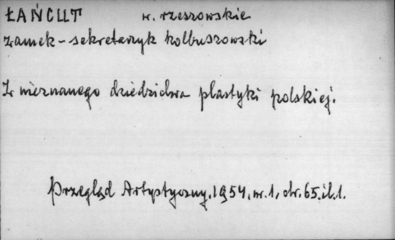 ŁAŃCUT w. rzeszowskie
zamek - sekretarzyk kolbuszowski
Z nieznanego dziedzictwa plastyki polskiej.
Przegląd Artystyczny, 1954, nr. 1, str. 65. il. 1.